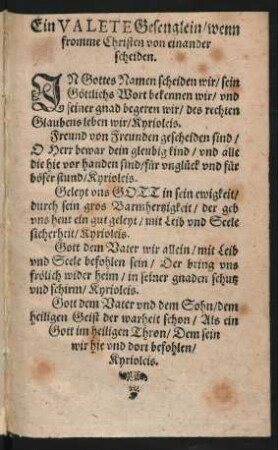 Ein VALETE Gesenglein/wenn
fromme Christen von einander
scheiden.
IN Gottes Namen scheiden wir/ sein
Göttlichs Wort bekennen wir/ vnd
seiner gnad begeren wir/ des rechten
Glaubens leben wir/Kyrioleis.
Freund von Freunden gescheiden sind/
O Herr bewar dein gleubig kind/ vnd alle
die hie vor handen sind/für vnglück vnd für
böser stund/Kyrioleis.
Geleyt vns GOTT in sein ewigkeit/
durch sein gros Barmhertzigkeit/ der geb
vns heut ein gut geleyt/ mit Leib vnd Seele
sicherheit/Kyrioleis.
Gott dem Vater wir allein/ mit Leib
vnd Seele befohlen sein/ Der bring vns
frölich wider heim/ in seiner gnaden schutz
vnd schirm/ Kyrioleis.
Gott dem Vater vnd dem Sohn/dem
heiligen Geist der warheit schon/ Als ein
Gott im heiligen Thron/ Dem sein
wir hie vnd dort befohlen/
Kyrioleis.